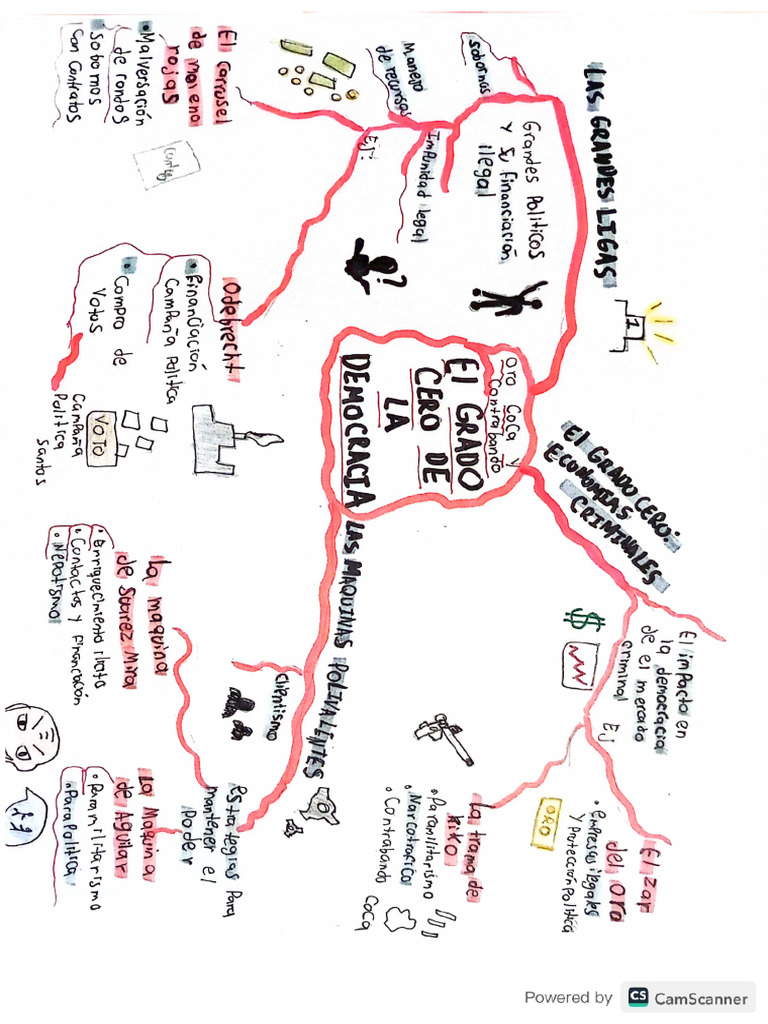 El GRADO
CERO DE
LA
DEMOCRACIA
Oro Coca y
Contrabando
LAS GRANDES LIGAS
1
Grandes Politicos
y su financiación
ilegal
sobornas
Manejo
de recursos
Impunidad legal
Ej:
?
El carrusel
de moreno
rojas
• Malversación
de fondos
• Sobornos
Con Contratos
Odebrecht
• Financiación
Campaña Politica
• Compra de
Votos
VOTO
Campaña
Politica
Santos
El GRADO CERO:
ECONOMIAS
CRIMINALES
El impacto en
la democracia
de el mercado
criminal
Ej
$
El zar
del oro
• Empresas ilegales
y Protección Politica
ORO
La trama de
kiko
• Paramilitarismo
• Narcotrafico
• Contrabando
Coca
LAS MAQUINAS POLIVALENTES
Clientismo
estrategias Para
mantener el
Poder
La maquina
de Suarez Mira
• Enriquecimiento ilicito
• Contactos y Financiación
• Nepotismo
La Maquina
de Aguilar
• Paramilitarismo
• ParaPolitica
Powered by CS CamScanner